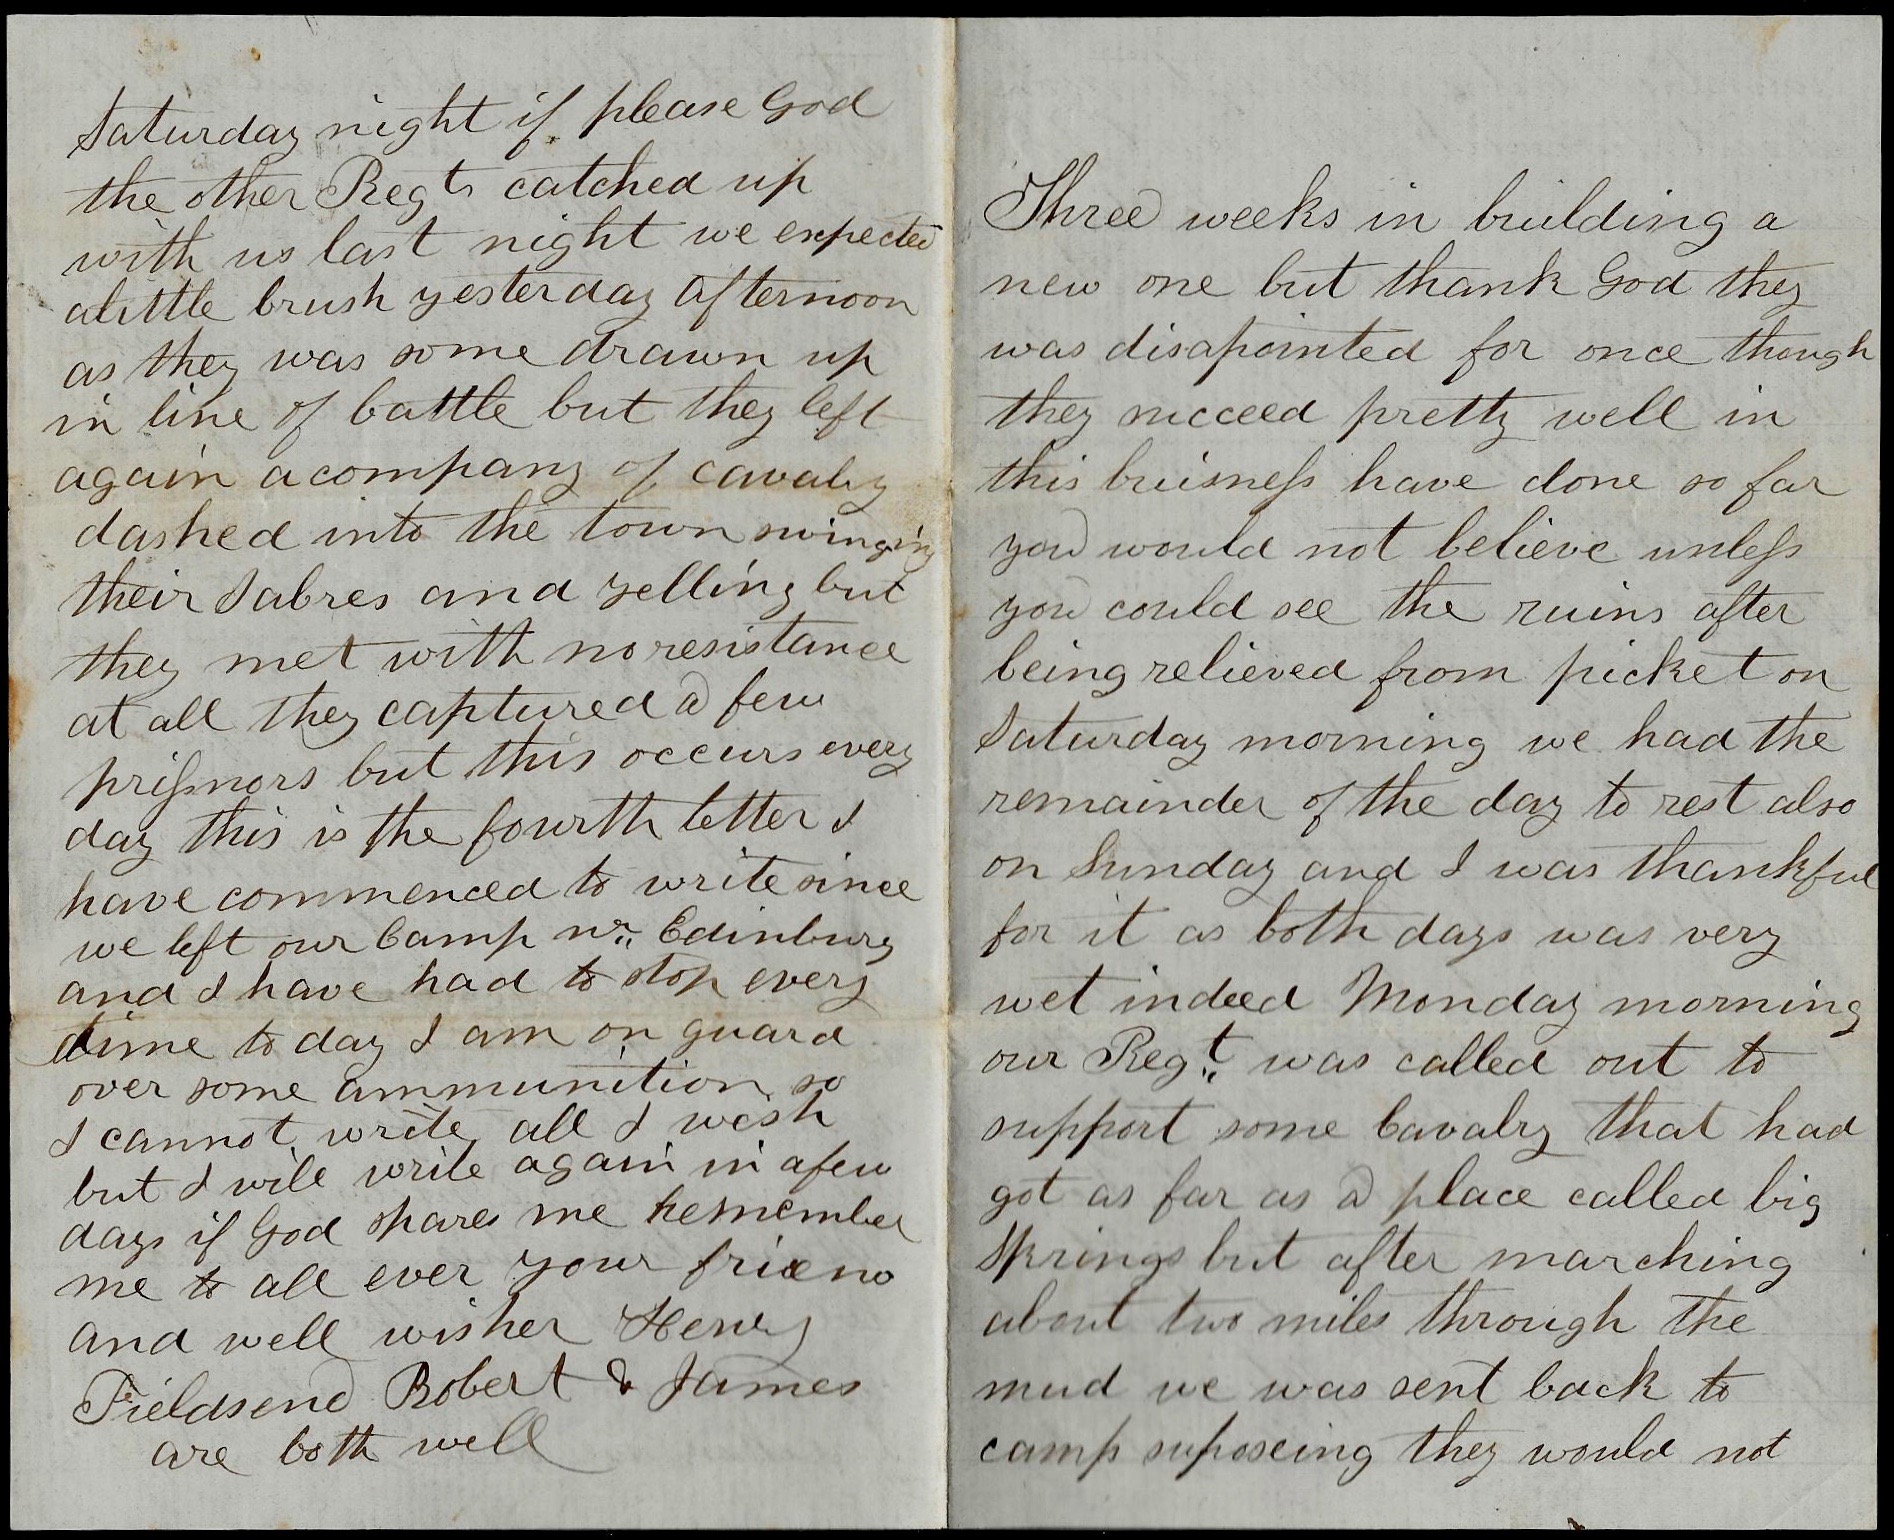 Saturday night if please God
the other Regts catched up
with us last night we expected
alittle brush yesterday afternoon
as they was some drawn up
in line of battle but they left
again acompany of cavalry
dashed into the town swinging
their Sabres and yelling but
they met with no resistance
at all they captured a few
prissnors but this occurs every
day this is the fourth letter I
have commenced to write since
we left our Camp nr. Edinburg
and I have had to stop every
time to day I am on guard
over some ammunition so
I cannot write all I wish
but I will write again in afew
days if God spares me Remember
me to all ever your friend
and well wisher Henry
Fieldsend Robert & James
are both well
Three weeks in building a
new one but thank God they
was disapointed for once though
they succeed pretty well in
this buisness have done so far
you would not believe unless
you could see the ruins after
being relieved from picket on
Saturday morning we had the
remainder of the day to rest also
on Sunday and I was thankful
for it as both days was very
wet indeed Monday morning
our Regt. was called out to
support some Cavalry that had
got as far as a place called big
Springs but after marching
about two miles through the
mud we was sent back to
camp suposeing they would not